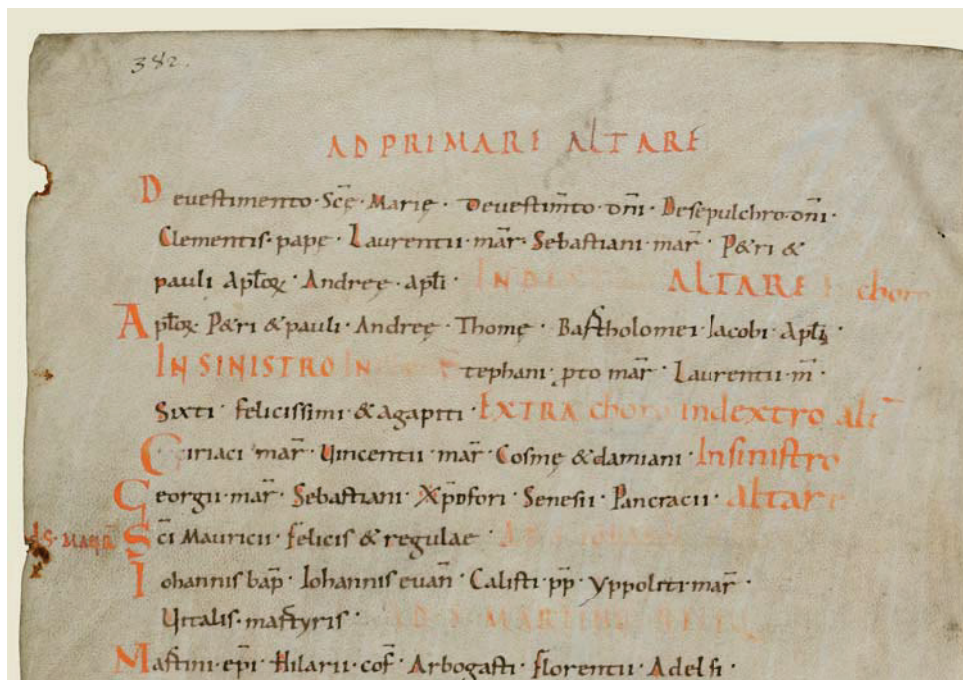 382.
AD PRIMARE ALTARE
De vestimento · Scē · Marię · De vestim̄to · dn̄i · De sepulchro · dn̄i ·
Clementis · papę · Laurentii · mar̄ · Sebastiani · mar̄ · P&ri &
pauli Apl̄oꝝ · Andreę · apl̄i · IN DEX ALTARE choro
Apl̄oꝝ P&ri & pauli · Andreę · Thomę · Bartholomei · Iacobi · Apl̄i ·
IN SINISTRO IN Stephani · pto mar̄ · Laurentii · m̄ ·
Sixti · felicissimi · & agapiti · EXTRA choro in dextro alt̄
Ciriaci mar̄ · Vincentii · mar̄ · Cosmę & damiani · In sinistro
Georgii · mar̄ · Sebastiani · Xp̄ofori · Senesii · Pancracii · altare
Sc̄i Mauricii · felicis & regulae ·
Iohannis bap̄ · Iohannis evan̄ · Calisti · pp̄ · Yppoliti · mar̄ ·
Vitalis · martyris · AD S MARTINU
Martini · ep̄i · Hilarii · cof̄ · Arbogasti · florentii · Adelfi ·